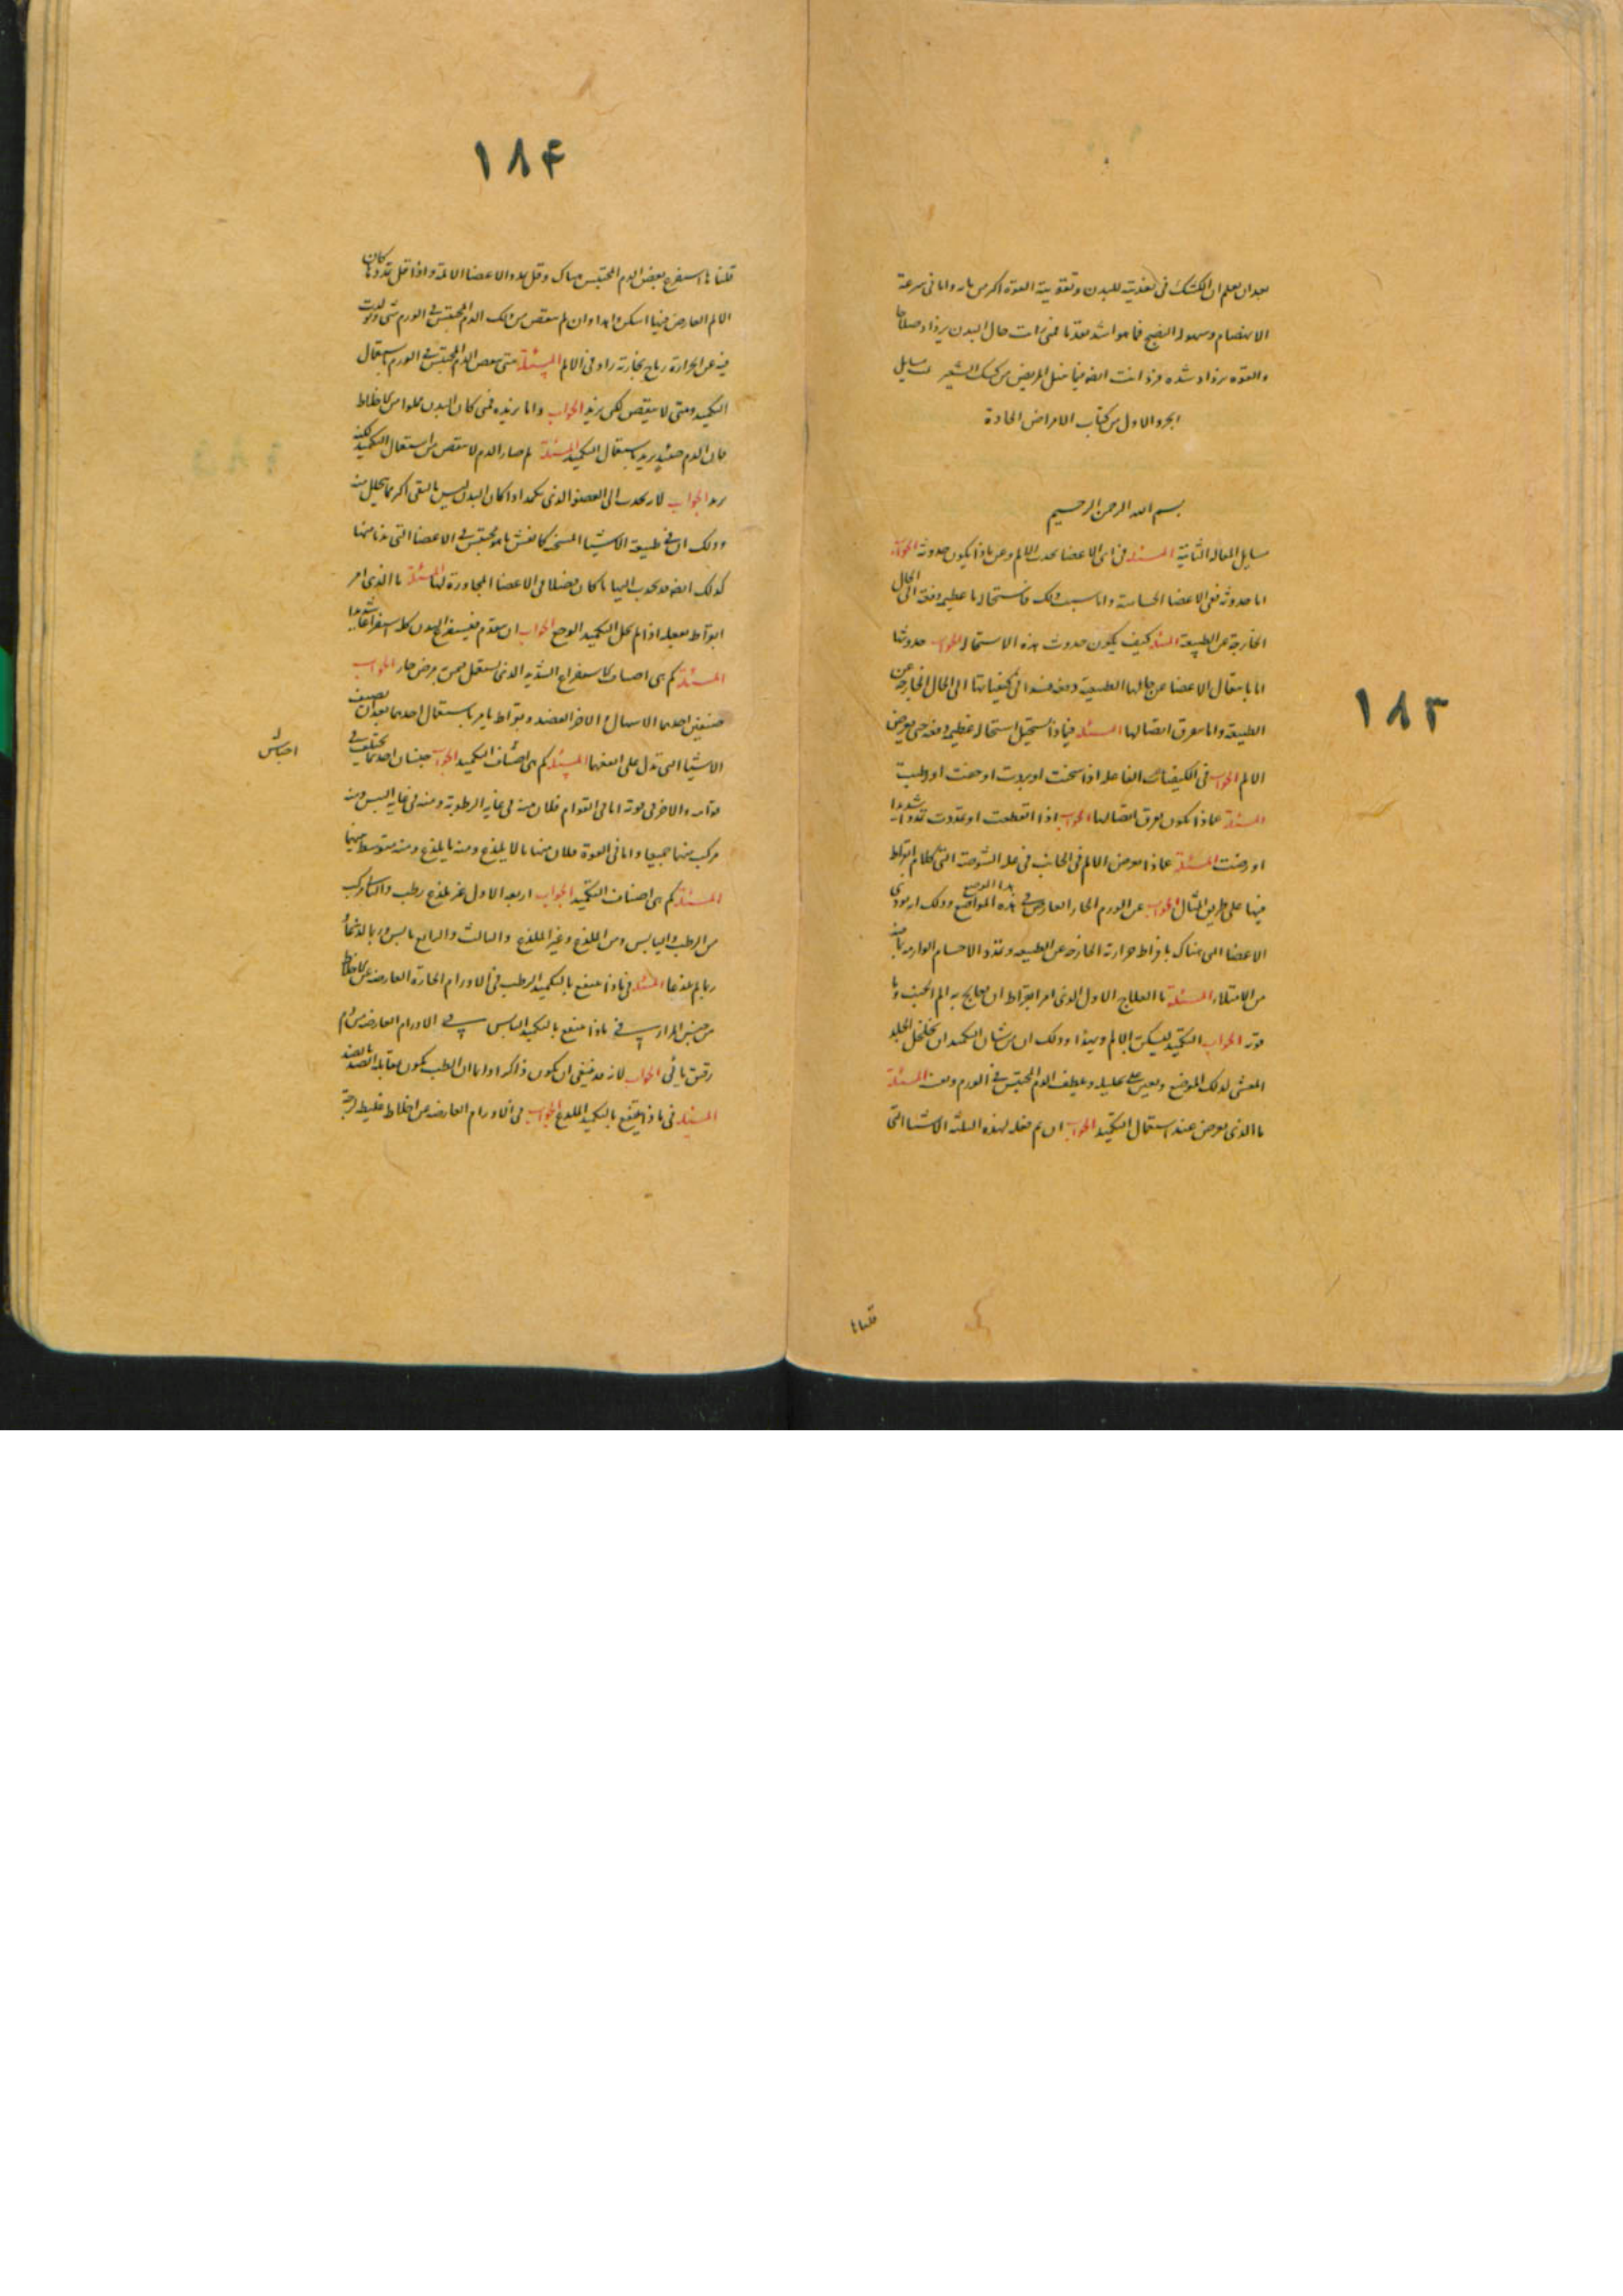 بعد ان يعلم ان الكشك في تغذيته للبدن وتقويته القوة اكثر من مائه واما في سرعة
الانهضام وسهولة النضج فماهو اشد تقدما فمتى رات حال البدن يزداد صلاحا
والقوة يزداد شدة فزد انت ايضا فيما ينال المريض من كشك الشعير تمت مسايل
الجزو الاول من كتاب الامراض الحادة
بسم الله الرحمن الرحيم
مسايل المقالة الثانية المسئلة في اى الاعضا يحدث الالم وعن ماذا يكون حدوثه الجواب
اما حدوثه ففى الاعضا الحساسة واما سبب ذلك فاستحالة عظيمة دفعة الى الحال
الخارجة عن الطبيعة المسئلة كيف يكون حدوث هذه الاستحالة الجواب حدوثها
اما بانتقال الاعضا عن حالها الطبيعية دفعة في كيفياتها الى الحال الخارجة عن
الطبيعة واما بتفرق اتصالها المسئلة فيماذا يستحيل استحالة عظيمة دفعة حتى يعرض
الالم الجواب في الكيفيات الفاعلة اذا سخنت او بردت او جففت او رطبت
المسئلة عماذا يكون تفرق اتصالها الجواب اذا انقطعت او تمددت تمددا شديدا
او رضت المسئلة عماذا يعرض الالم في الجانب في علة الشوصة التى كلام ابقراط
فيها على طريق المثال الجواب عن الورم الحار العارض في هذه المواضع وذلك انه يوذى
الاعضا التى هناك بافراط حرارته الخارجة عن الطبيعة وتمدد الاجسام الوارمة
من الامتلاء المسئلة ما العلاج الاول الذى امر ابقراط ان يعالج به الم الجنب وما
قوته الجواب التكميد ليسكن الالم وبهذا وذلك ان من شان التكميد ان يخلخل الجلد
المغشى لذلك الموضع ويعين على تحليله ويلطف الدم المحتقن في الورم المسئلة
ما الذى يعرض عند استعمال التكميد الجواب ان تم فعله لهذه الثلثة الاشيا التى
قلناها
١٨٣
١٨۴
قلناها استفرغ بعض الدم المحتبس هناك وقل تمدد الاعضا الالمة واذا قل تمددها كان
الالم العارض فيها اسكن واهدا وان لم ينتقص من ذلك الدم المحتبس في الورم شى وتولدت
فيه عن الحرارة رياح بخارية زاد في الالم المسئلة متى ينقص الدم المحتبس في الورم باستعمال
التكميد ومتى لا ينتقص لكن يزيد الجواب واما يزيده فمتى كان البدن مملوا من الاخلاط
فان الدم حينئذ يزيد باستعمال التكميد المسئلة لم صار الدم لا ينتقص من استعمال التكميد لكنه
يزيد الجواب لانه يجذب الى العضو الذى يكمد اذا كان البدن ليس بالنقى اكثر مما يحلل منه
وذلك ان في طبيعة الاشيا المسخنة كما تفش ما هو محتقن في الاعضا التى يدنا منها
كذلك ايضا قد يجذب اليها ما كان فضلا في الاعضا المجاورة لها المسئلة ما الذى امر
ابقراط بفعله اذا لم يحلل التكميد الوجع الجواب ان يتقدم فيستفرغ البدن كله استفراغا شديدا
المسئلة كم هى اصناف الاستفراغ الشديد الذى يستعمل في مرض حار الجواب
صنفين احدهما الاسهال والاخر الفصد وبقراط يامر باستعمال احدهما بعد ان يصف
الاشيا التى تدل على انفعهما المسئلة كم هى اصناف التكميد الجواب جنسان احدهما يختلف في
قوامه والاخر في قوته اما في القوام فلان منه في غاية الرطوبة ومنه في غاية اليبس ومنه
مركب منهما جميعا واما في القوة فلان منها ما لا يلذع ومنه ما يلذع ومنه متوسط فيهما
المسئلة كم هى اصناف التكميد الجواب اربعة الاول غير يلذع رطب والثانى مركب
من الرطب واليابس ومن اللذع وغير اللذع والثالث والرابع
المسئلة في ماذا ينتفع بالتكميد الرطب في الاورام الحارة العارضة عن اخلاط
من جنس المرار في ماذا ينتفع بالتكميد اليابس في الاورام العارضة من دم
رقيق مائى الجواب لانه قد ينبغى ان يكون ذاكرا دايما ان الطب يكون بمقابلة الضد بالضد
المسئلة في ماذا ينتفع بالتكميد اللذع الجواب في الاورام العارضة عن اخلاط غليظة لزجة
اجناس